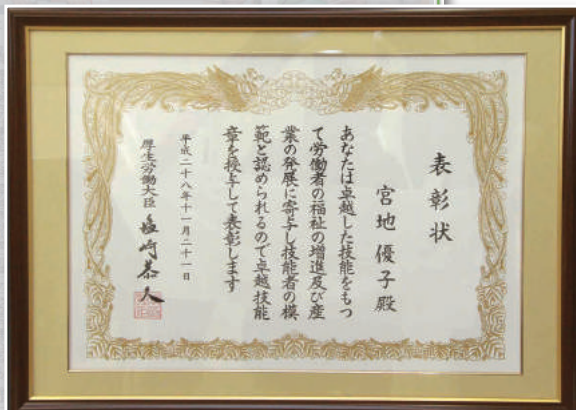 表彰状
宮地優子殿
あなたは卓越した技能をもつ
て労働者の福祉の増進及び産
業の発展に寄与し技能者の模
範と認められるので卓越技能
章を授与して表彰します
平成二十八年十一月二十一日
厚生労働大臣 塩崎恭久